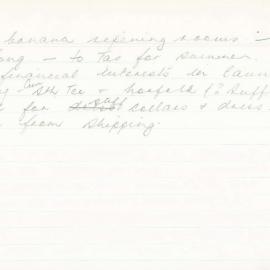 banana ripening rooms :-
ong - to Tas for summer.
financial interests in laun
Sth Tce & Norfolk (? Suff
for collars & dress
from shipping.